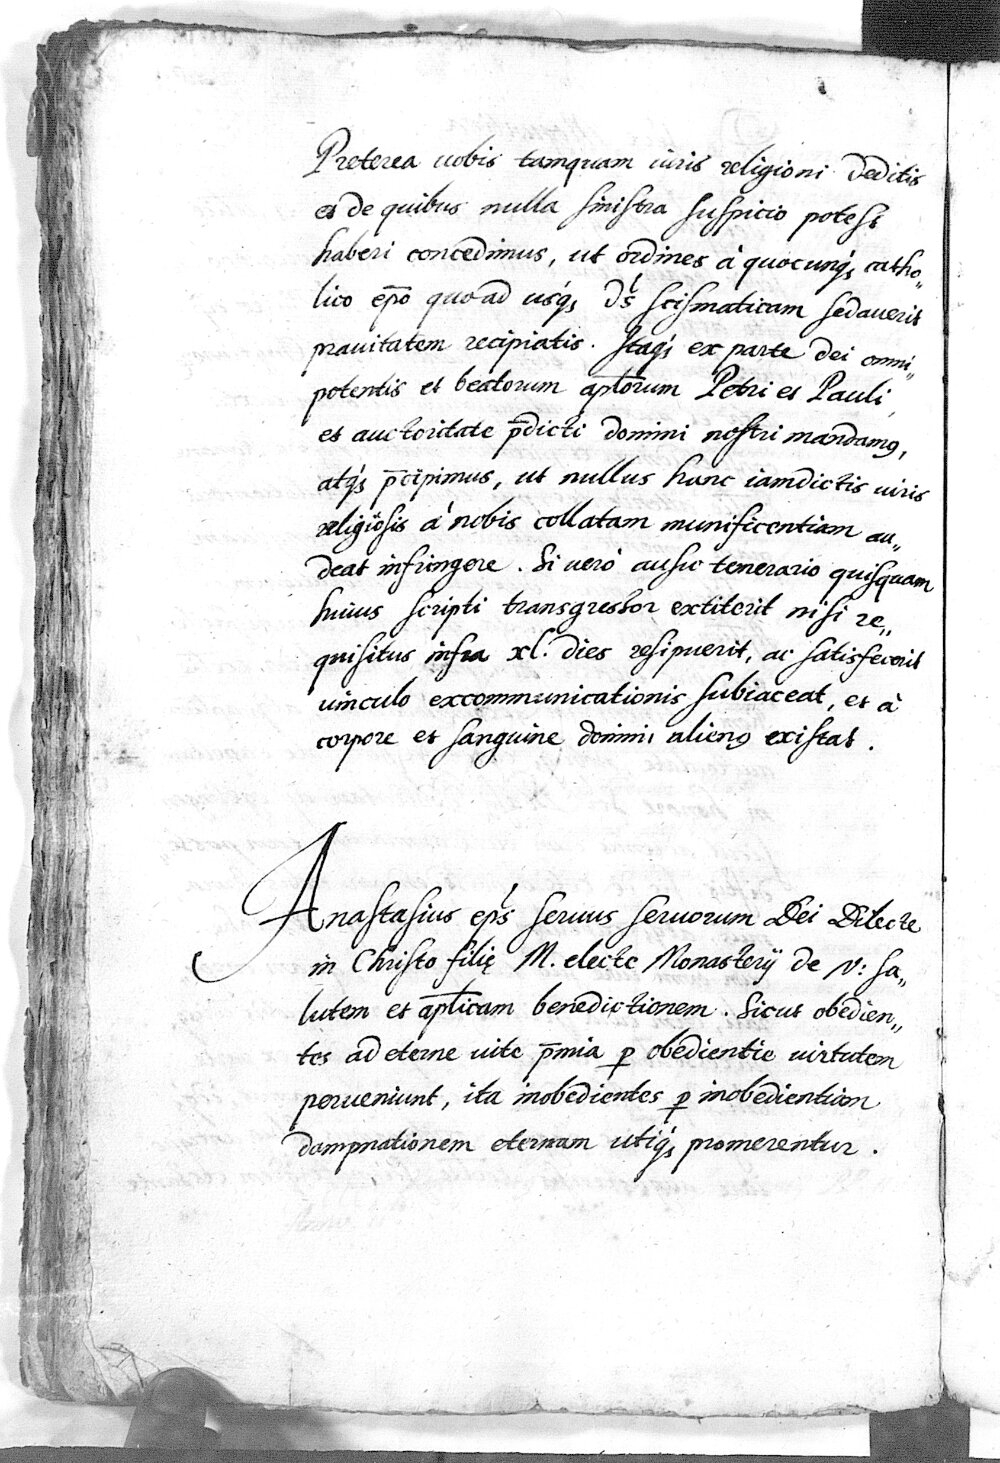 Preterea uobis tamquam uiris religioni deditis
et de quibus nulla sinistra suspicio potest
haberi concedimus, ut ordines à quocunq́ȝ catho„
lico ep̄o quoad usq́ȝ D's scismaticam sedauerit
prauitatem recipiatis. Itaq́ȝ ex parte dei omni„
potentis et beatorum ap̄lorum Petri et Pauli,
et auctoritate p̄dicti domini nostri mandamꝰ,
atq́ȝ p̄cipimus, ut nullus hanc iamdictis uiris
religiosis à nobis collatam munificentiam au„
deat infringere. Si uerò ausu temerario quisquam
huius scripti transgressor extiterit nisi re„
quisitus infra xl. dies resipuerit, ac satisfecerit
uinculo excommunicationis subiaceat, et à
corpore et sanguine domini alienꝰ existat.
Anastasius ep's seruus seruorum Dei Dilecte
in Christo filię M. electe Monasterij de N: sa„
lutem et ap̄licam benedictionem. Sicut obedien„
tes ad eterne uite p̄mia ꝑ obedientie uirtutem
perueniunt, ita inobedientes ꝑ inobedientiam
dampnationem eternam utiq́ȝ promerentur.